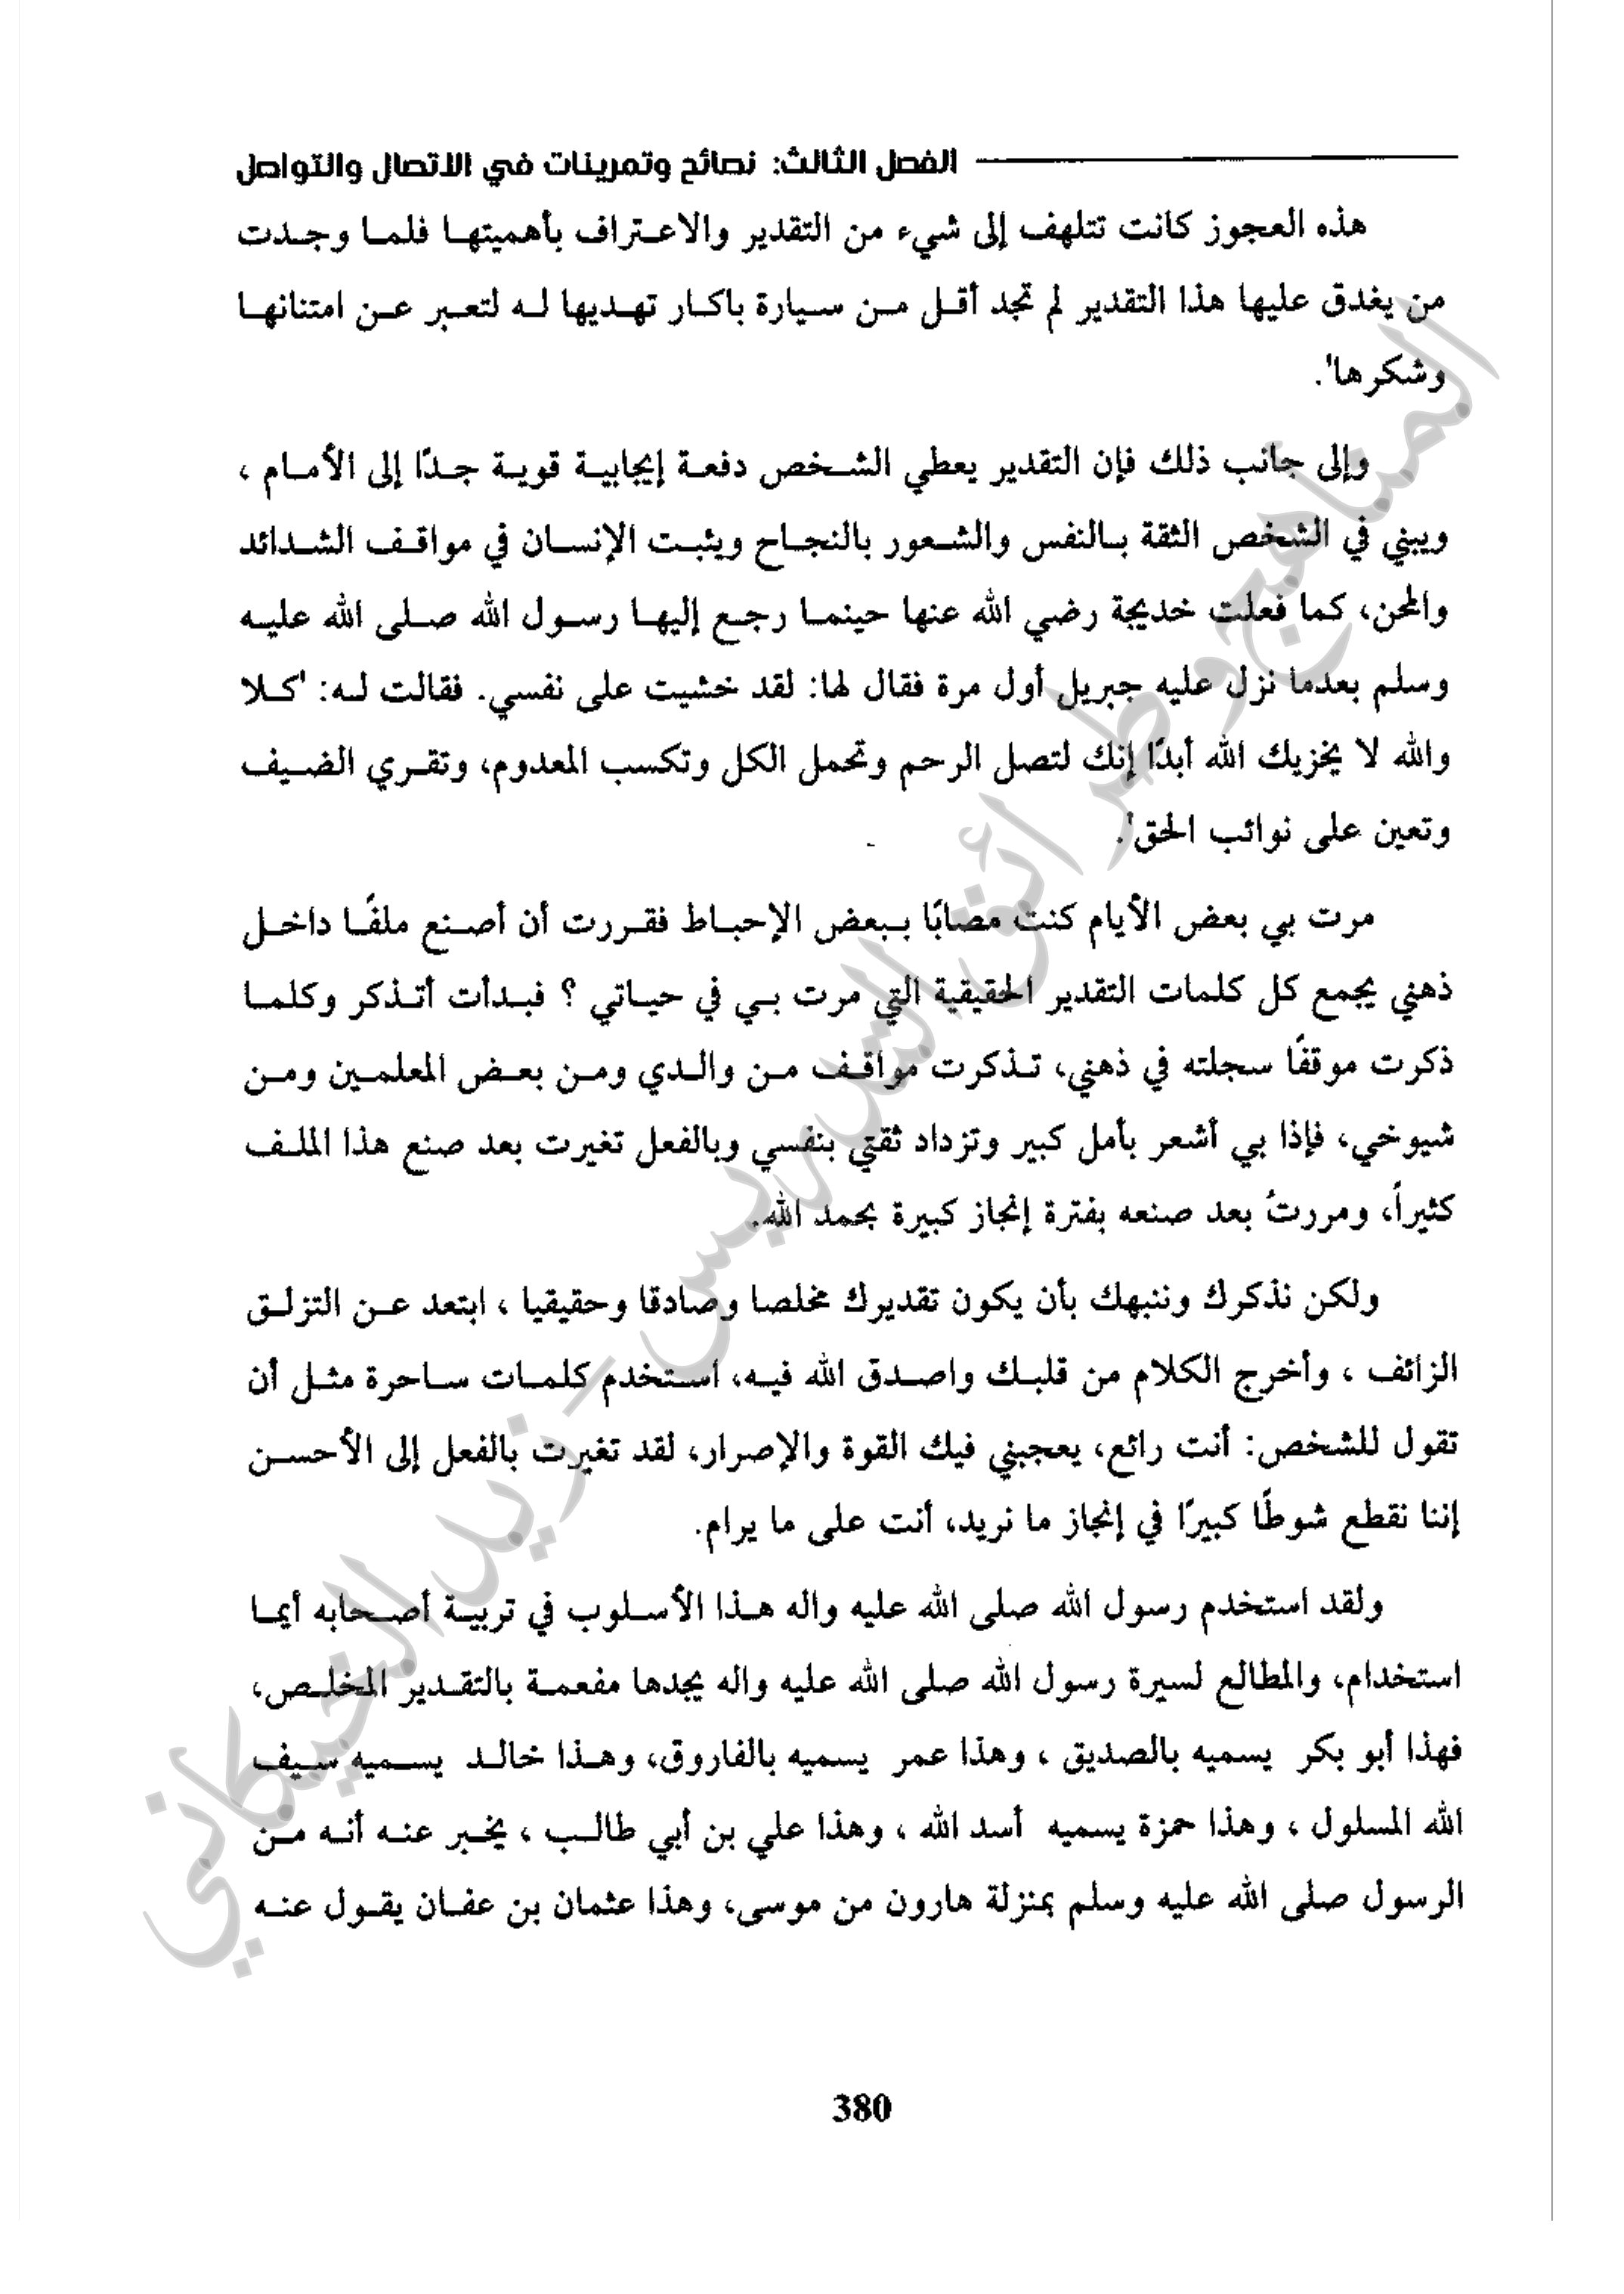 الفصل الثالث: نصائح وتمرينات في الاتصال والتواصل
هذه العجوز كانت تتلهف إلى شيء من التقدير والاعتراف بأهميتها فلما وجدت
من يغدق عليها هذا التقدير لم تجد أقل من سيارة باكار تهديها له لتعبر عن امتنانها
وشكرها".
وإلى جانب ذلك فإن التقدير يعطي الشخص دفعة إيجابية قوية جدًا إلى الأمام ،
ويبني في الشخص الثقة بالنفس والشعور بالنجاح ويثبت الإنسان في مواقف الشدائد
والمحن، كما فعلت خديجة رضي الله عنها حينما رجع إليها رسول الله صلى الله عليه
وسلم بعدما نزل عليه جبريل أول مرة فقال لها: لقد خشيت على نفسي. فقالت له: "كلا
والله لا يخزيك الله أبدًا إنك لتصل الرحم وتحمل الكل وتكسب المعدوم، وتقري الضيف
وتعين على نوائب الحق".
مرت بي بعض الأيام كنت مصابًا ببعض الإحباط فقررت أن أصنع ملفًا داخل
ذهني يجمع كل كلمات التقدير الحقيقية التي مرت بي في حياتي ؟ فبدأت أتذكر وكلما
ذكرت موقفًا سجلته في ذهني، تذكرت مواقف من والدي ومن بعض المعلمين ومن
شيوخي، فإذا بي أشعر بأمل كبير وتزداد ثقتي بنفسي وبالفعل تغيرت بعد صنع هذا الملف
كثيراً، ومررتُ بعد صنعه بفترة إنجاز كبيرة بحمد الله.
ولكن نذكرك وننبهك بأن يكون تقديرك مخلصا وصادقا وحقيقيا ، ابتعد عن التزلق
الزائف ، وأخرج الكلام من قلبك واصدق الله فيه، استخدم كلمات ساحرة مثل أن
تقول للشخص: أنت رائع، يعجبني فيك القوة والإصرار، لقد تغيرت بالفعل إلى الأحسن
إننا نقطع شوطًا كبيرًا في إنجاز ما نريد، أنت على ما يرام.
ولقد استخدم رسول الله صلى الله عليه واله هذا الأسلوب في تربية أصحابه أيما
استخدام، والمطالع لسيرة رسول الله صلى الله عليه واله يجدها مفعمة بالتقدير المخلص،
فهذا أبو بكر يسميه بالصديق ، وهذا عمر يسميه بالفاروق، وهذا خالد يسميه سيف
الله المسلول ، وهذا حمزة يسميه أسد الله ، وهذا علي بن أبي طالب ، يخبر عنه أنه من
الرسول صلى الله عليه وسلم بمنزلة هارون من موسى، وهذا عثمان بن عفان يقول عنه
380
المناهج وطرائق التدريس - زيد الخيكاني